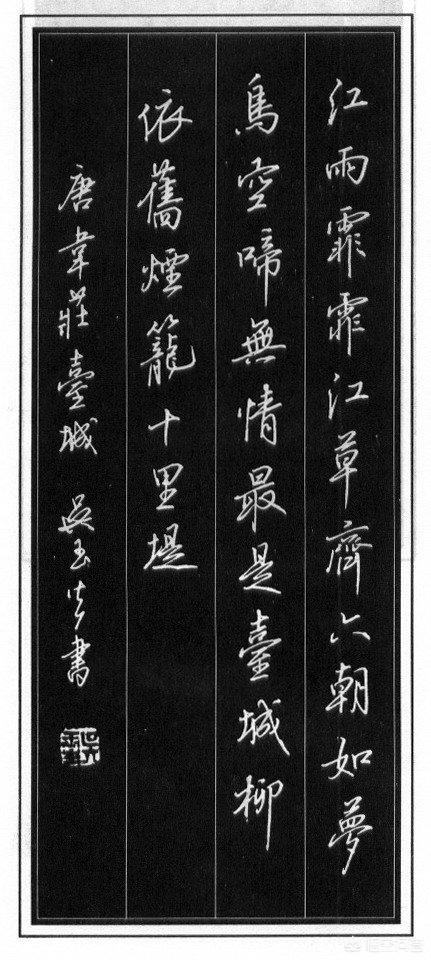 江雨霏霏江草齊六朝如夢
鳥空啼無情最是臺城柳
依舊煙籠十里堤
唐韋莊臺城 吳玉生書